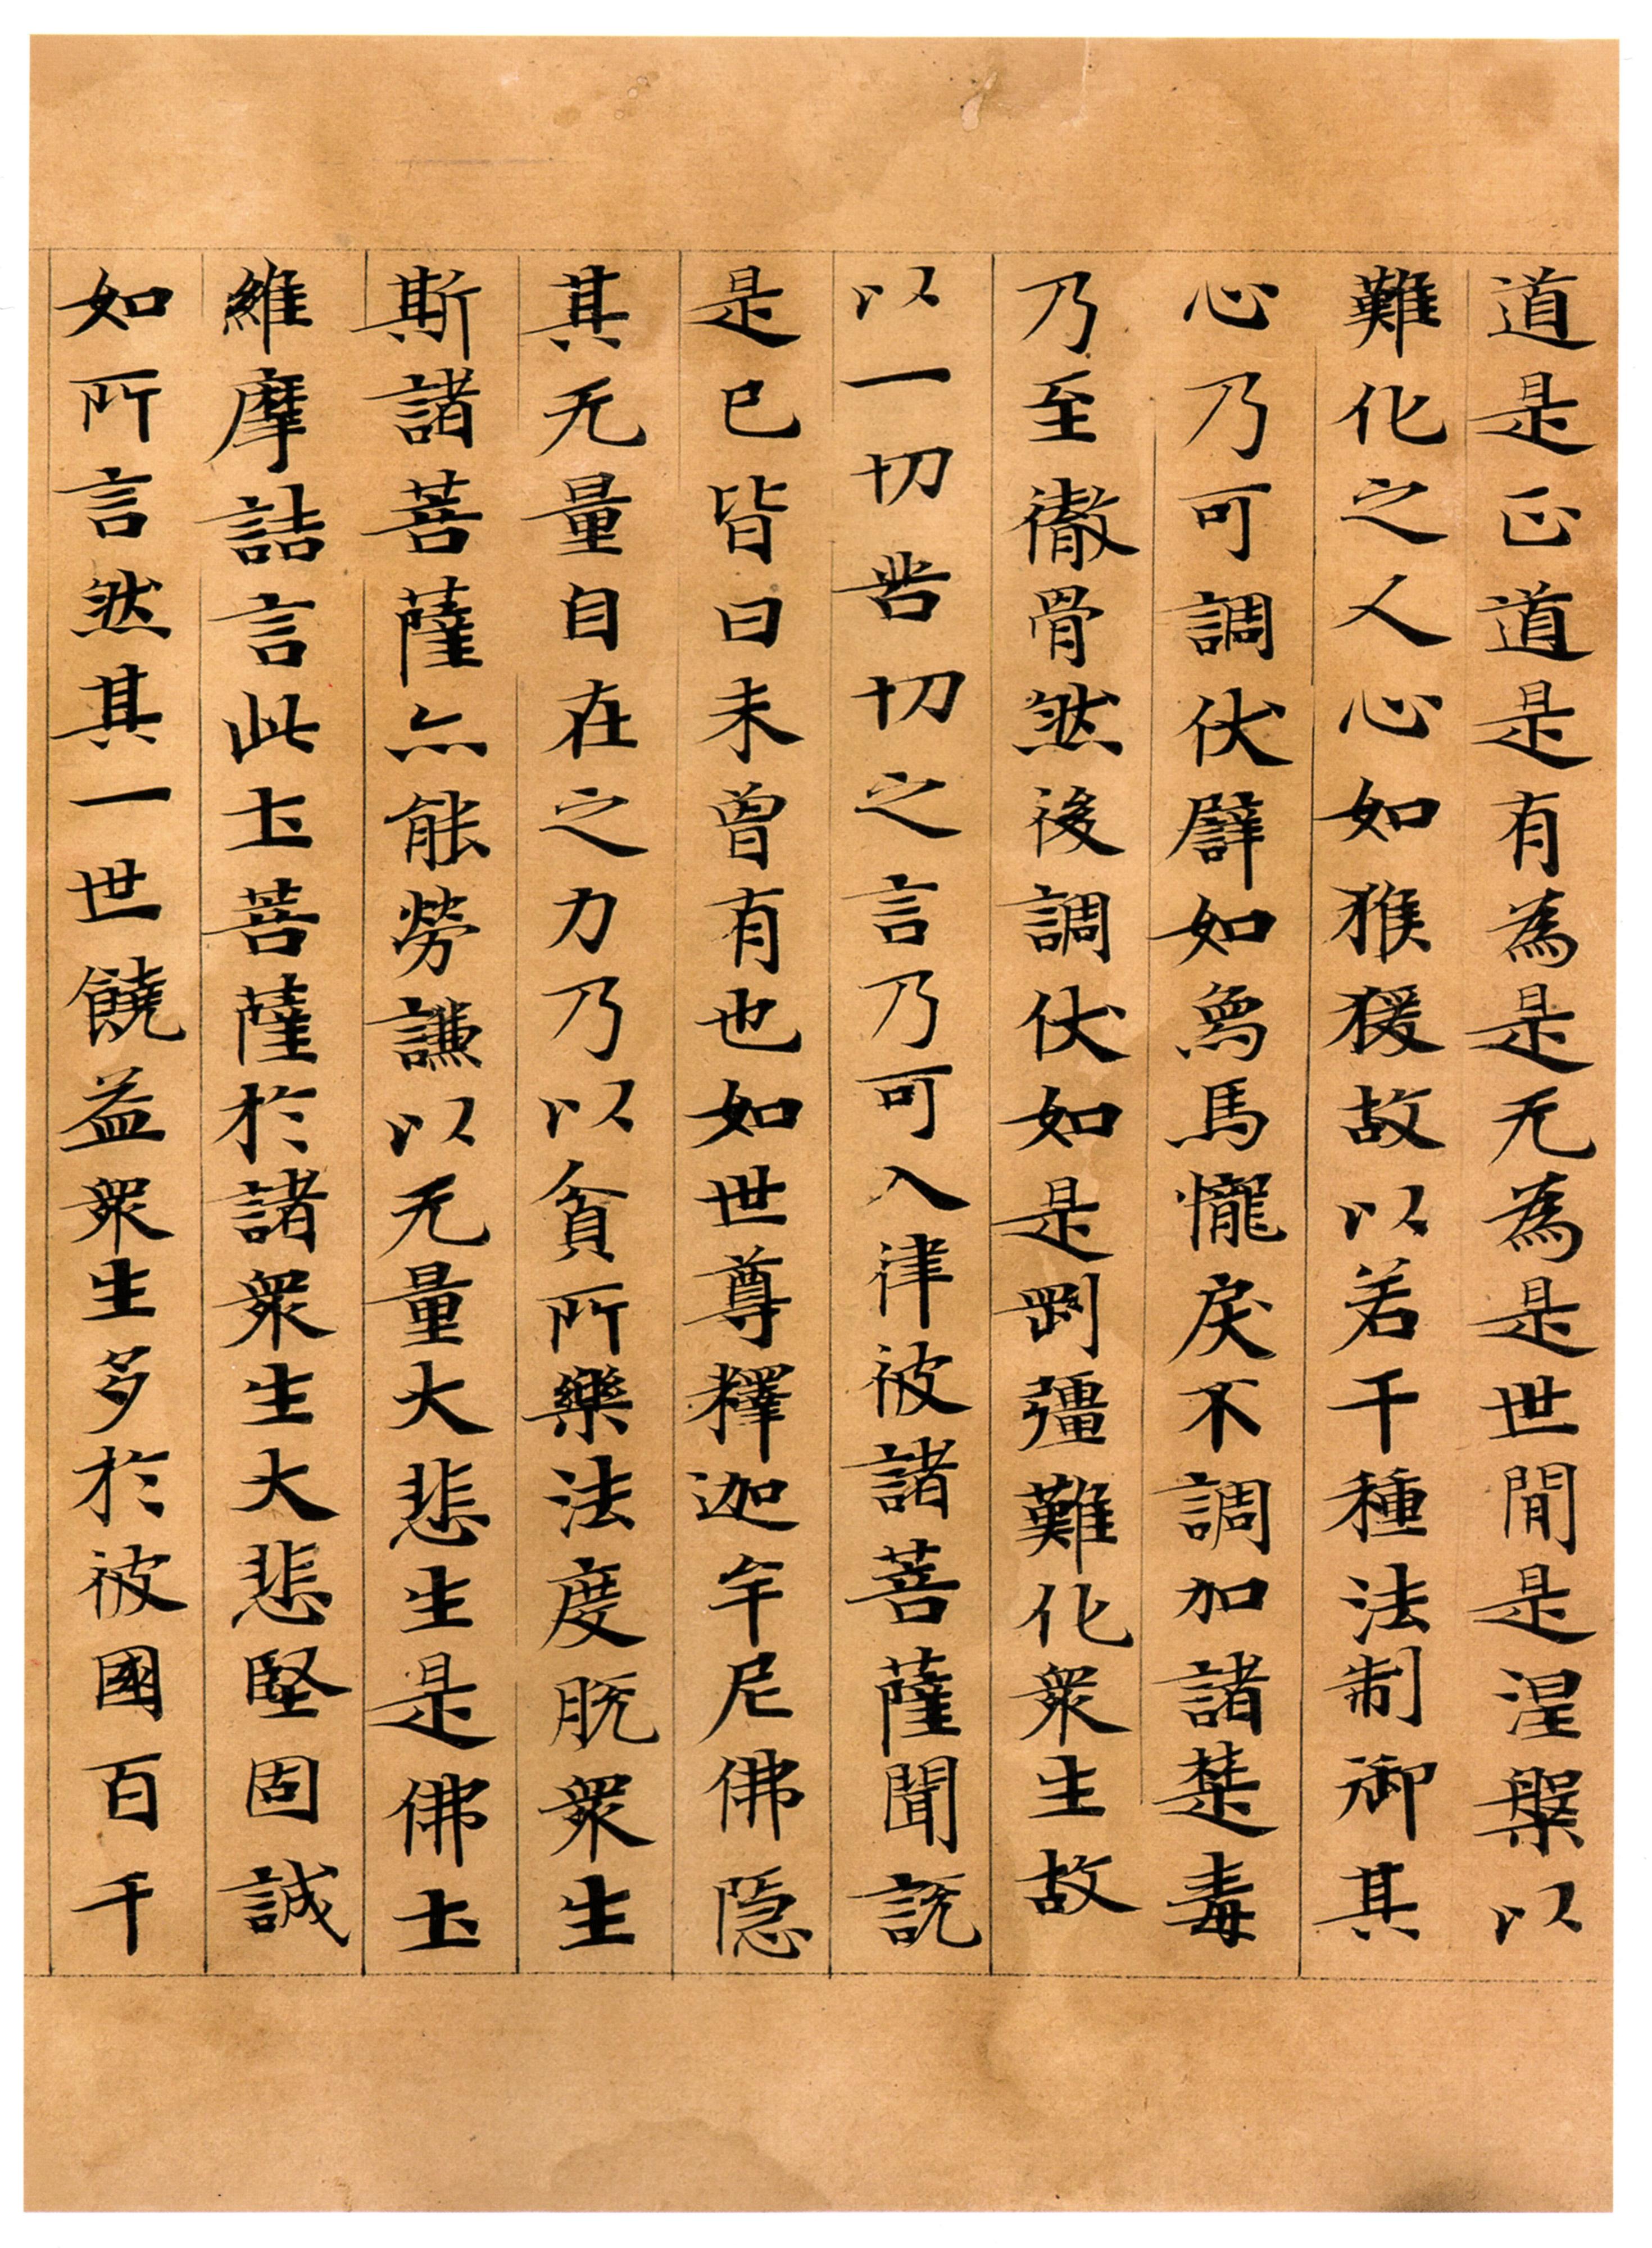 道是正道是有為是无為是世間是涅槃以
難化之人心如猴猨故以若干種法制御其
心乃可調伏譬如象馬𢤱戾不調加諸楚毒
乃至徹骨然後調伏如是剛彊難化衆生故
以一切苦切之言乃可入律彼諸菩薩聞說
是已皆曰未曾有也如世尊釋迦牟尼佛隱
其无量自在之力乃以貧所樂法度脫衆生
斯諸菩薩亦能勞謙以无量大悲生是佛土
維摩詰言此土菩薩於諸衆生大悲堅固誠
如所言然其一世饒益衆生多於彼國百千